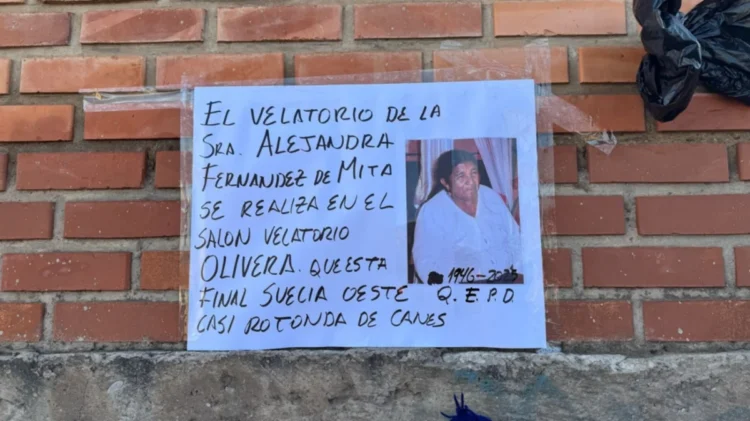 EL VELATORIO DE LA
SRA. ALEJANDRA
FERNANDEZ DE MITA
SE REALIZA EN EL
SALON VELATORIO
OLIVERA. QUEESTA
FINAL SUECIA OESTE
CASI ROTONDA DE CANES
1946-2023
Q.E.P.D.